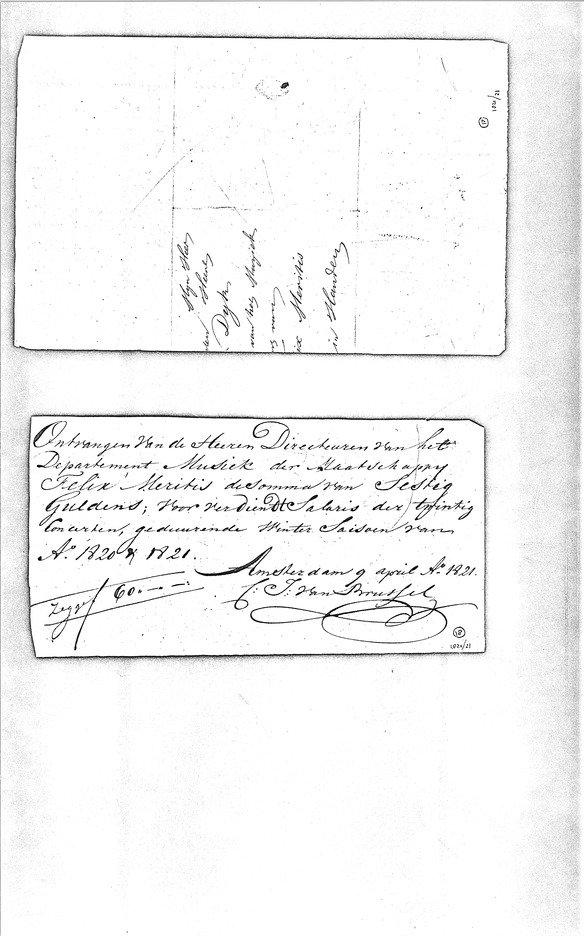 1820/21
18
Myn Heer
Heere
Dyk
van het Musiek
Meritis
in Handen
Ontvangen van de Heeren Directeuren van het
Departement Musiek der Maatschappy
Felix Meritis de Somma van Sestig
Guldens; voor verdiendt Salaris der twintig
Concerten, geduurende Winter Saisoen van
Aº. 1820 & 1821.
Amsterdam 9 april Aº 1821.
Zegge 60.—
C: J: van Brussel
18
1820/21